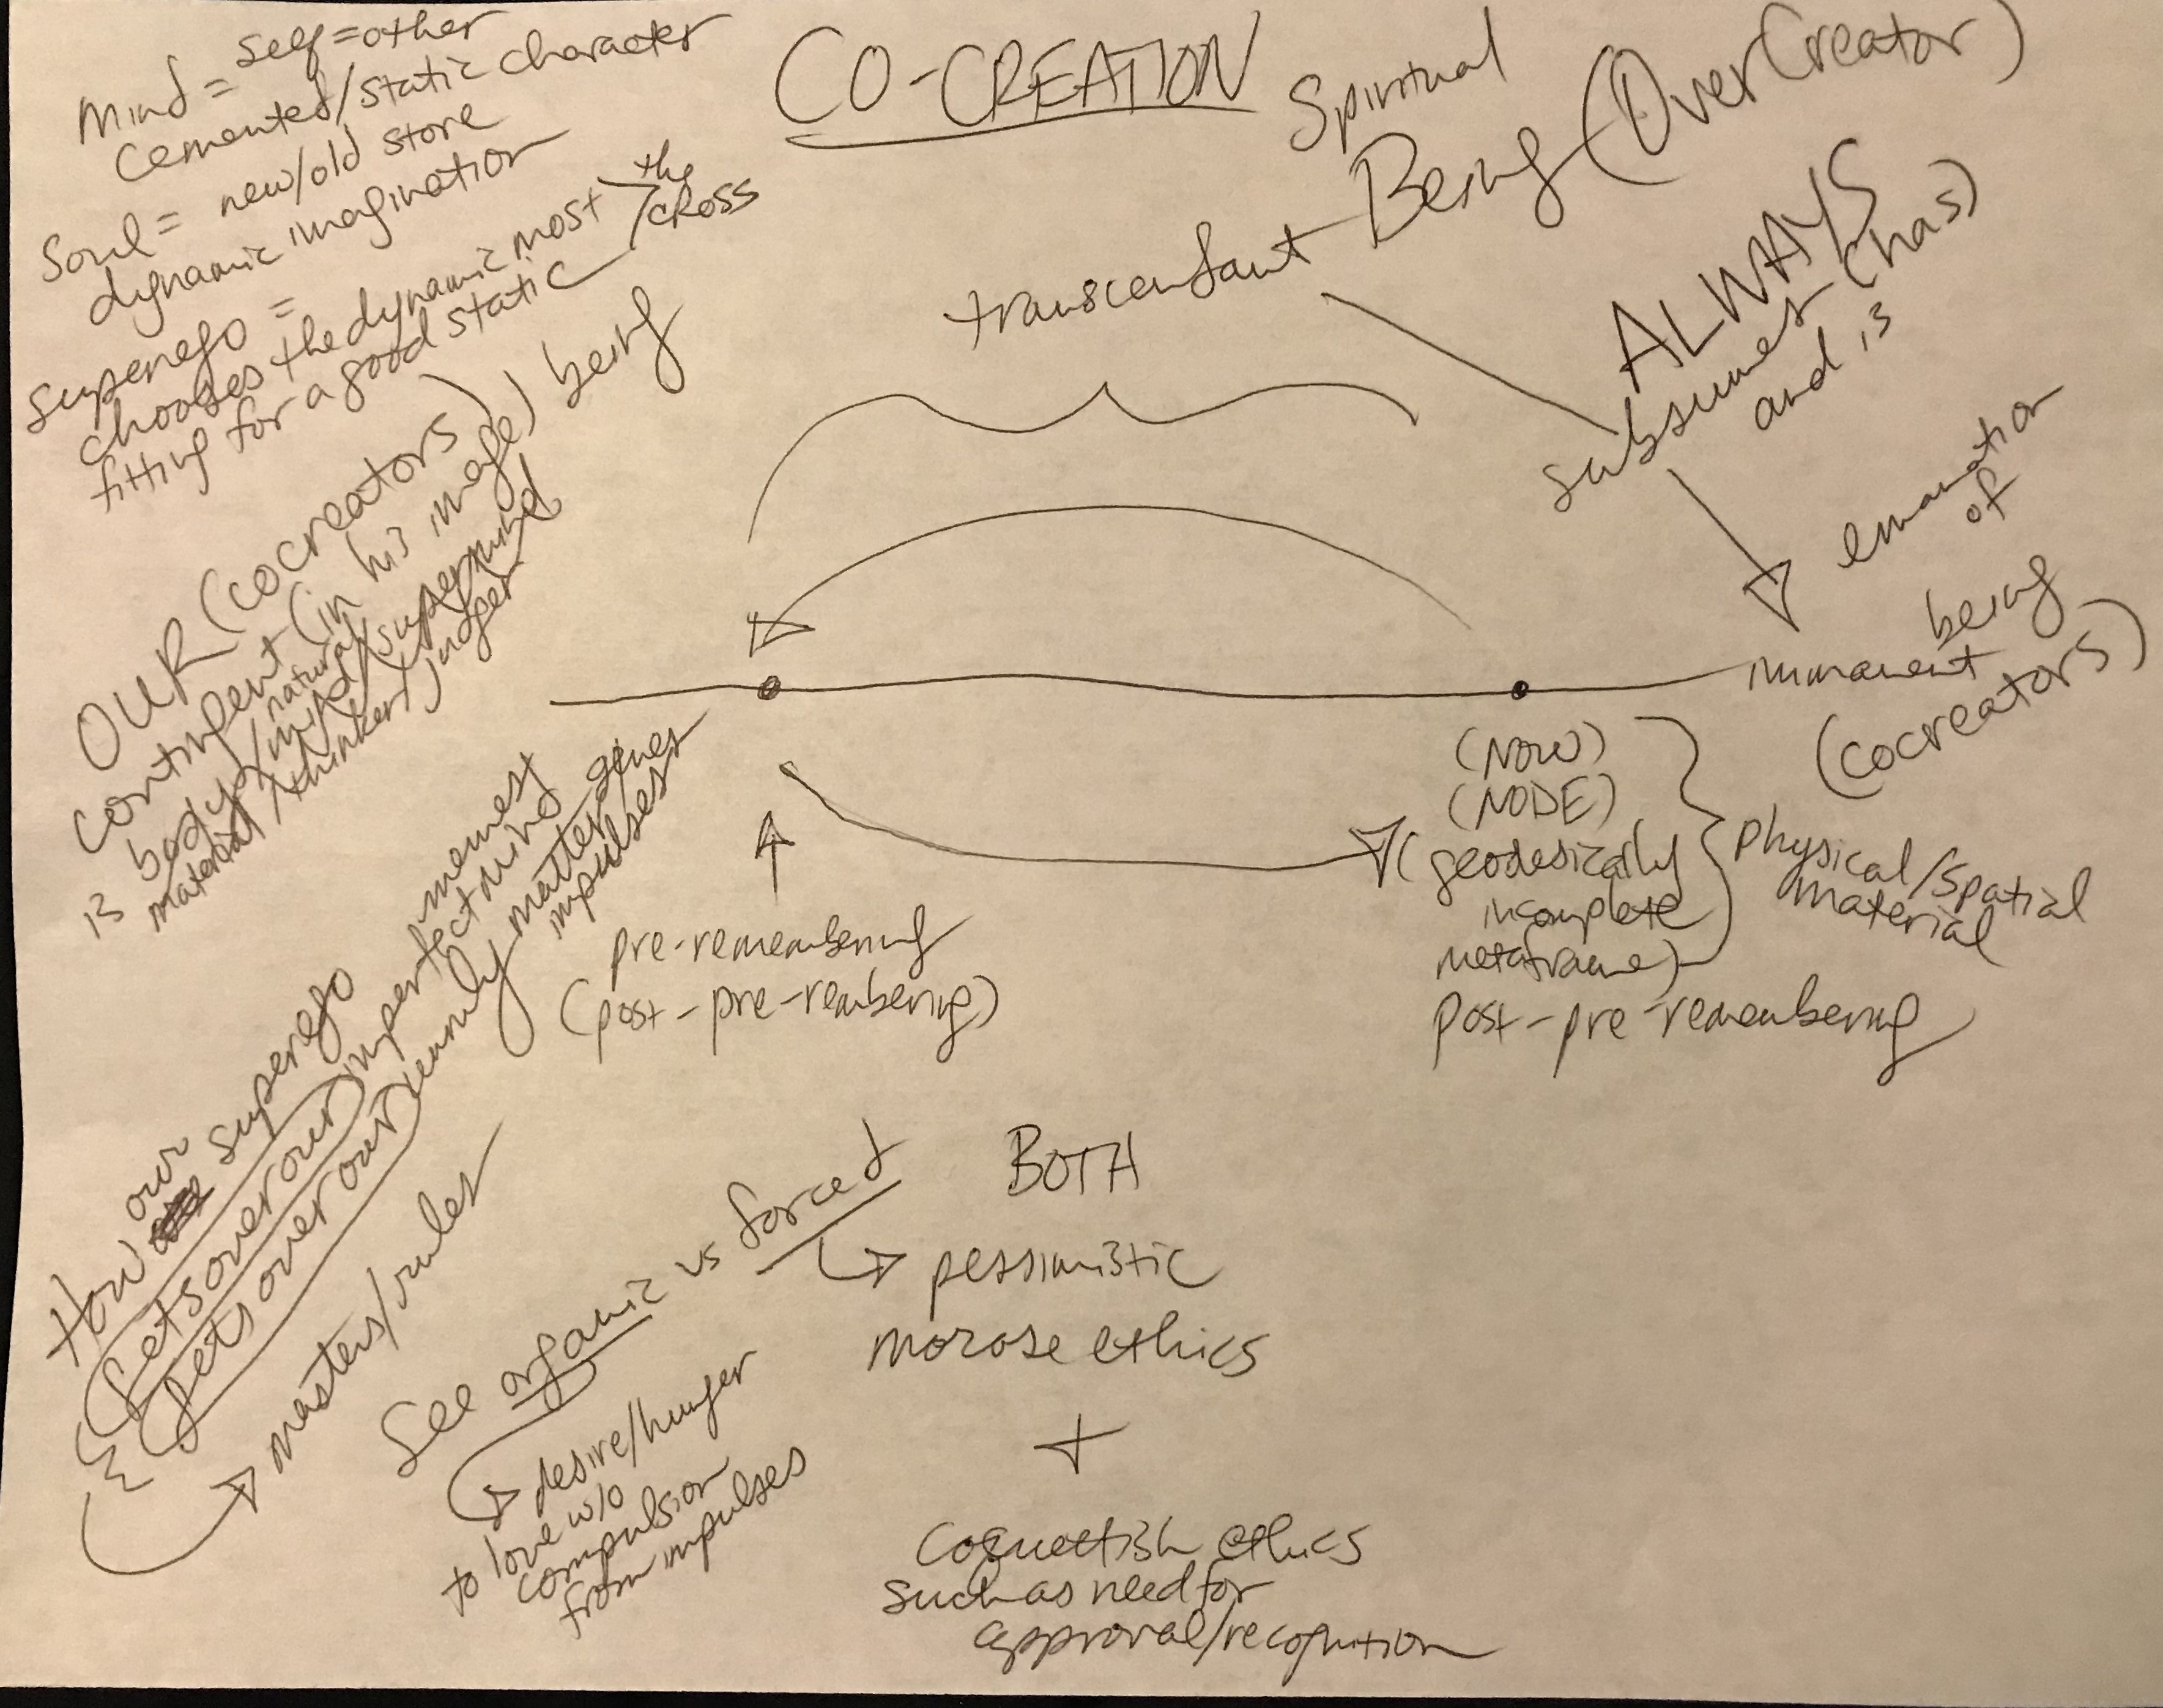 CO-CREATION
Mind = self=other
cemented/static character
Soul = new/old store
dynamic imagination
superego =
chooses the dynamic most
fitting for a good static
the
cross
OUR (cocreators)
contingent (in his image) being
is body/natural mind/supermind
material/thinker/judger
Spiritual
transcendant Being (OverCreator)
ALWAYS
subsumes (has)
and is
emanation
of
being
immanent
(cocreators)
(NOW)
(NODE)
(geodesically
incomplete
metaframe)
physical/spatial
material
post-pre-remembering
pre-remembering
(post-pre-rembering)
How our superego
gets over our imperfect mind memes
& gets over our unruly matter genes
impulses
masters/rules
See organic vs forced
desire/hunger
to love w/o
compulsion
from impulses
BOTH
pessimistic
morose ethics
+
Coquettish ethics
such as need for
approval/recognition